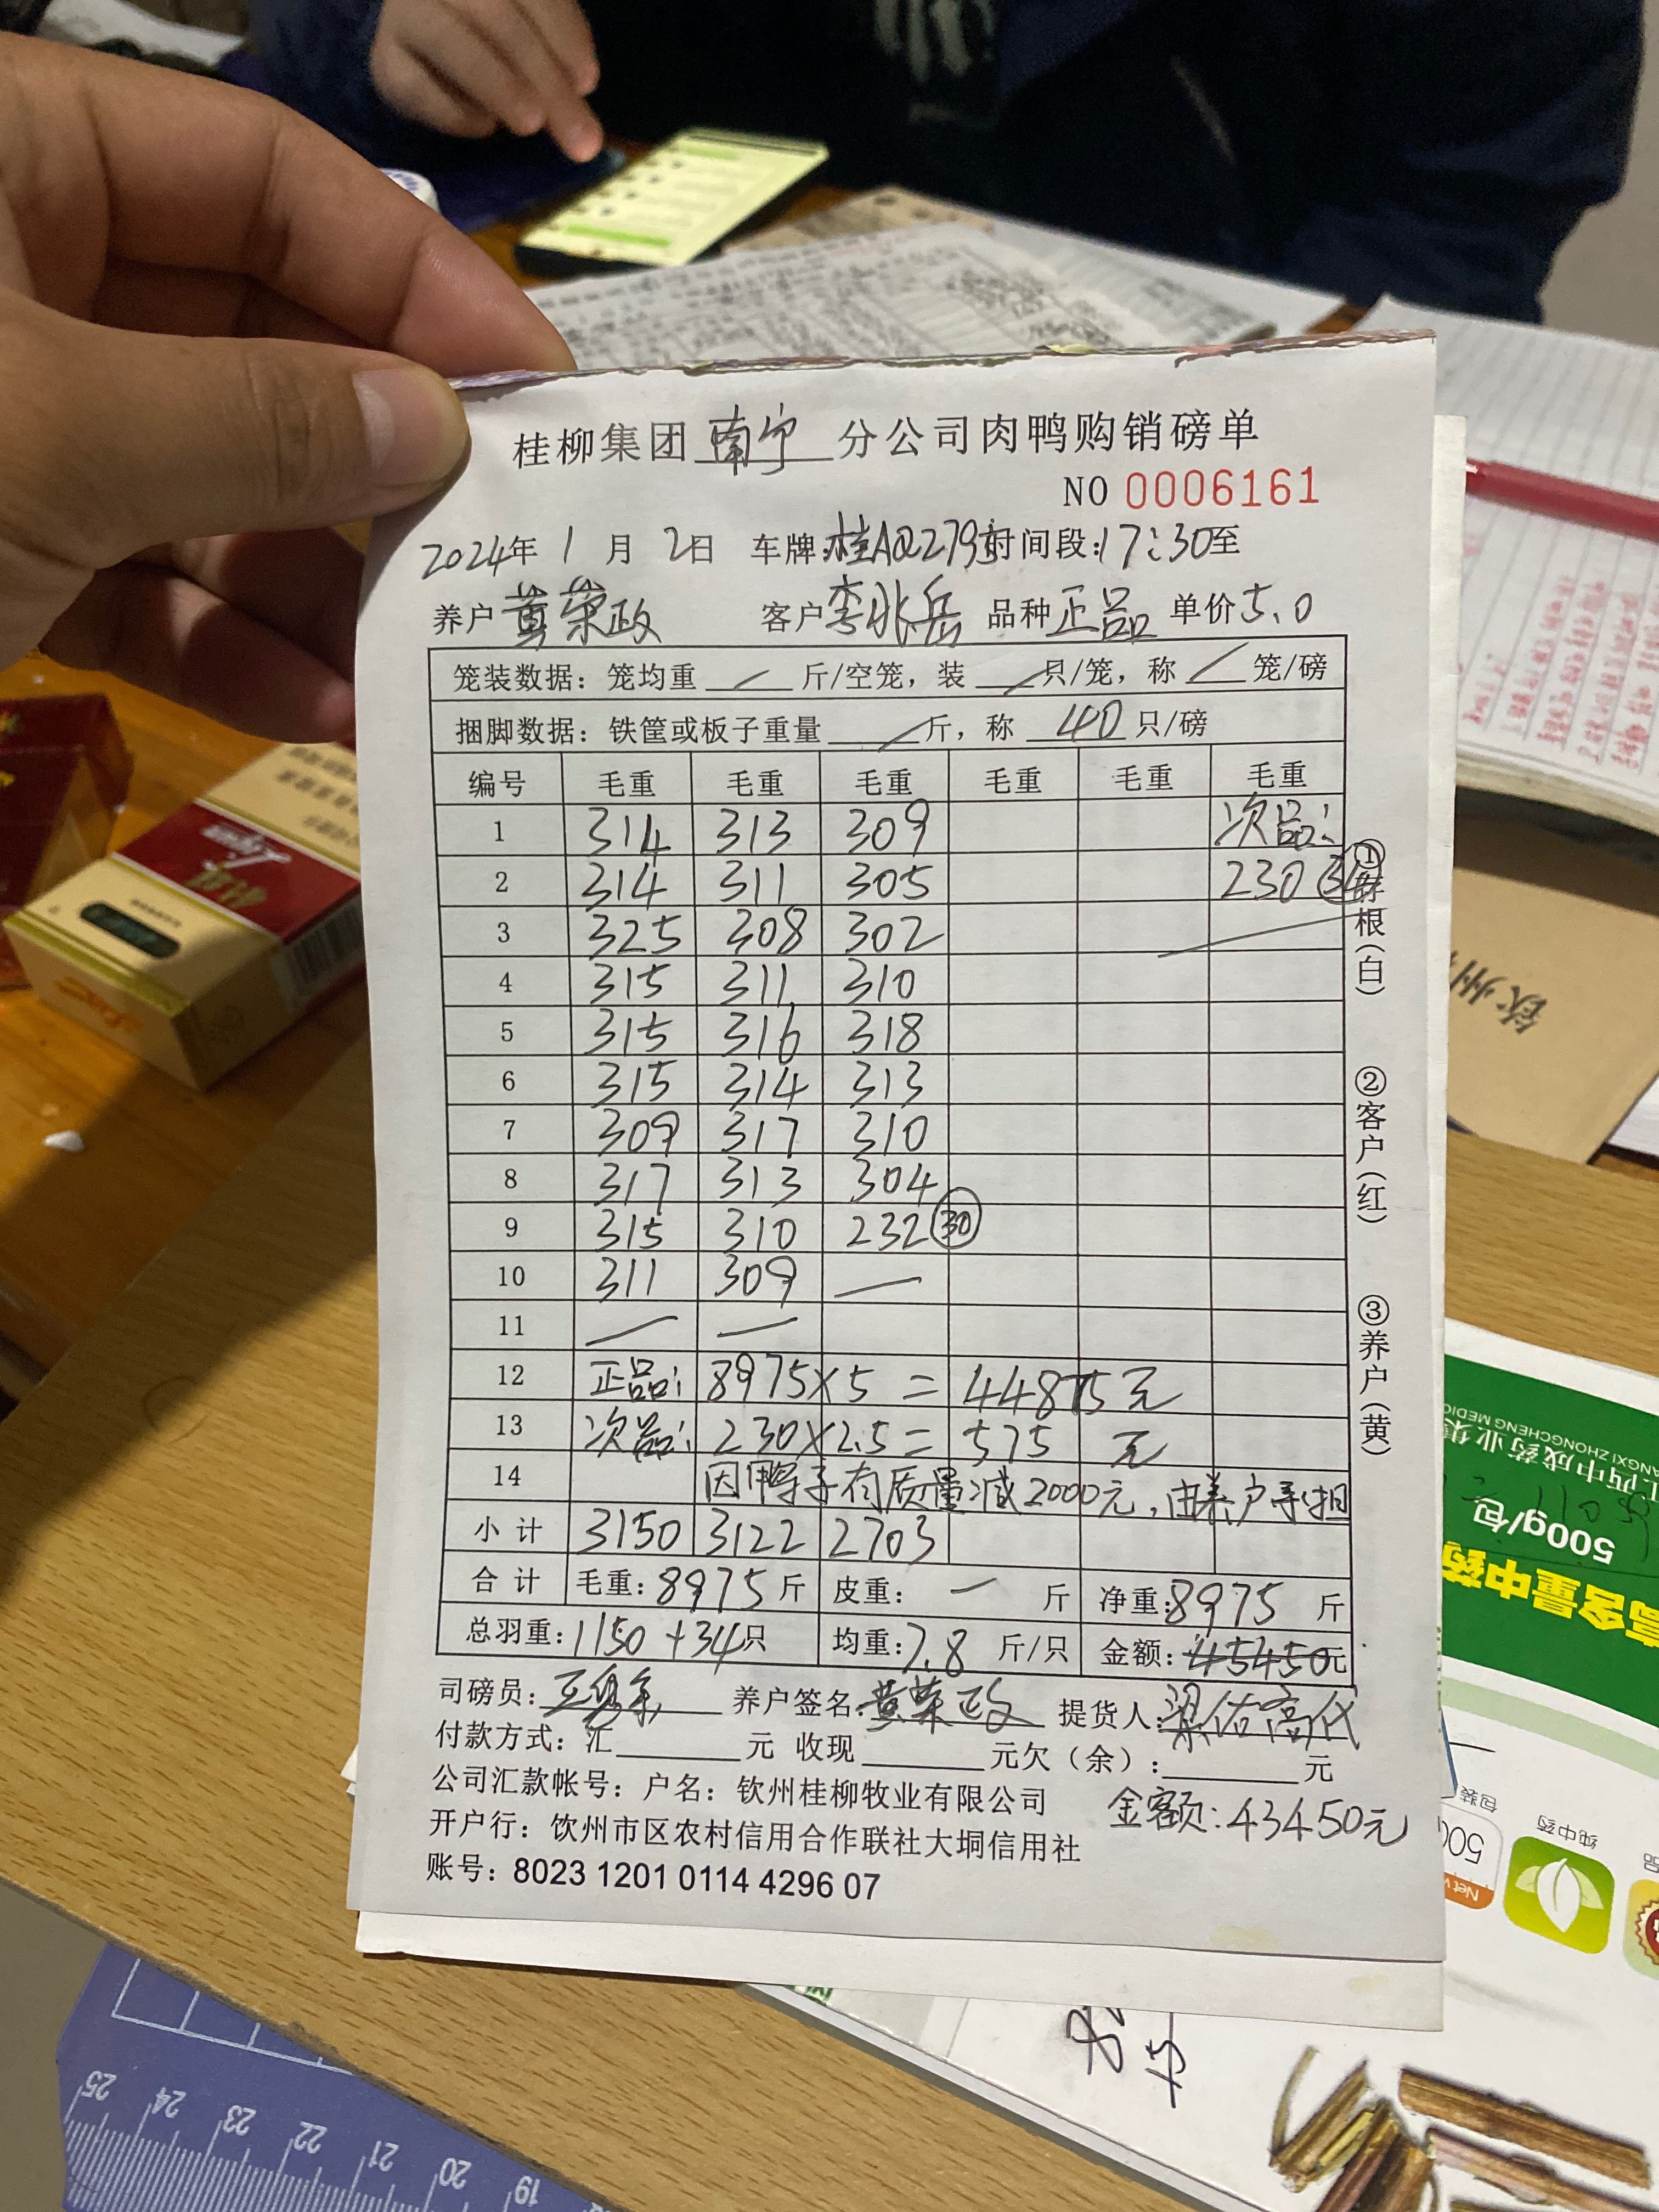 桂柳集团南宁分公司肉鸭购销磅单
NO 0006161
2024年 1月 2日 车牌:桂AQ2795时间段:17:30至
养户 黄荣政 客户 李兆岳 品种 正品 单价 5.0
笼装数据：笼均重 — 斤/空笼，装 — 只/笼，称 — 笼/磅
捆脚数据：铁筐或板子重量 — 斤，称 40 只/磅
编号 毛重 毛重 毛重 毛重 毛重 毛重
1 314 313 309 次品:
2 314 311 305 230 34
3 325 308 302
4 315 311 310
5 315 316 318
6 315 314 313
7 309 317 310
8 317 313 304
9 315 310 232 30
10 311 309 —
11 — —
12 正品: 8975×5 = 44875元
13 次品: 230×2.5 = 575 元
14 因鸭子有质量减2000元，由养户承担
小计 3150 3122 2703
合计 毛重：8975斤 皮重：— 斤 净重：8975 斤
总羽重：1150+34只 均重：7.8 斤/只 金额：45450元
司磅员： 养户签名：黄荣政 提货人：梁佑高代
付款方式：汇 元 收现 元欠（余）： 元
公司汇款帐号：户名：钦州桂柳牧业有限公司
金额：43450元
开户行：饮州市区农村信用合作联社大垌信用社
账号：8023 1201 0114 4296 07
①存根（白）
②客户（红）
③养户（黄）
钦州
江西中成药业集
500g/包
高含量中药
纯中药
包装
25 24 23 22 21 20 19